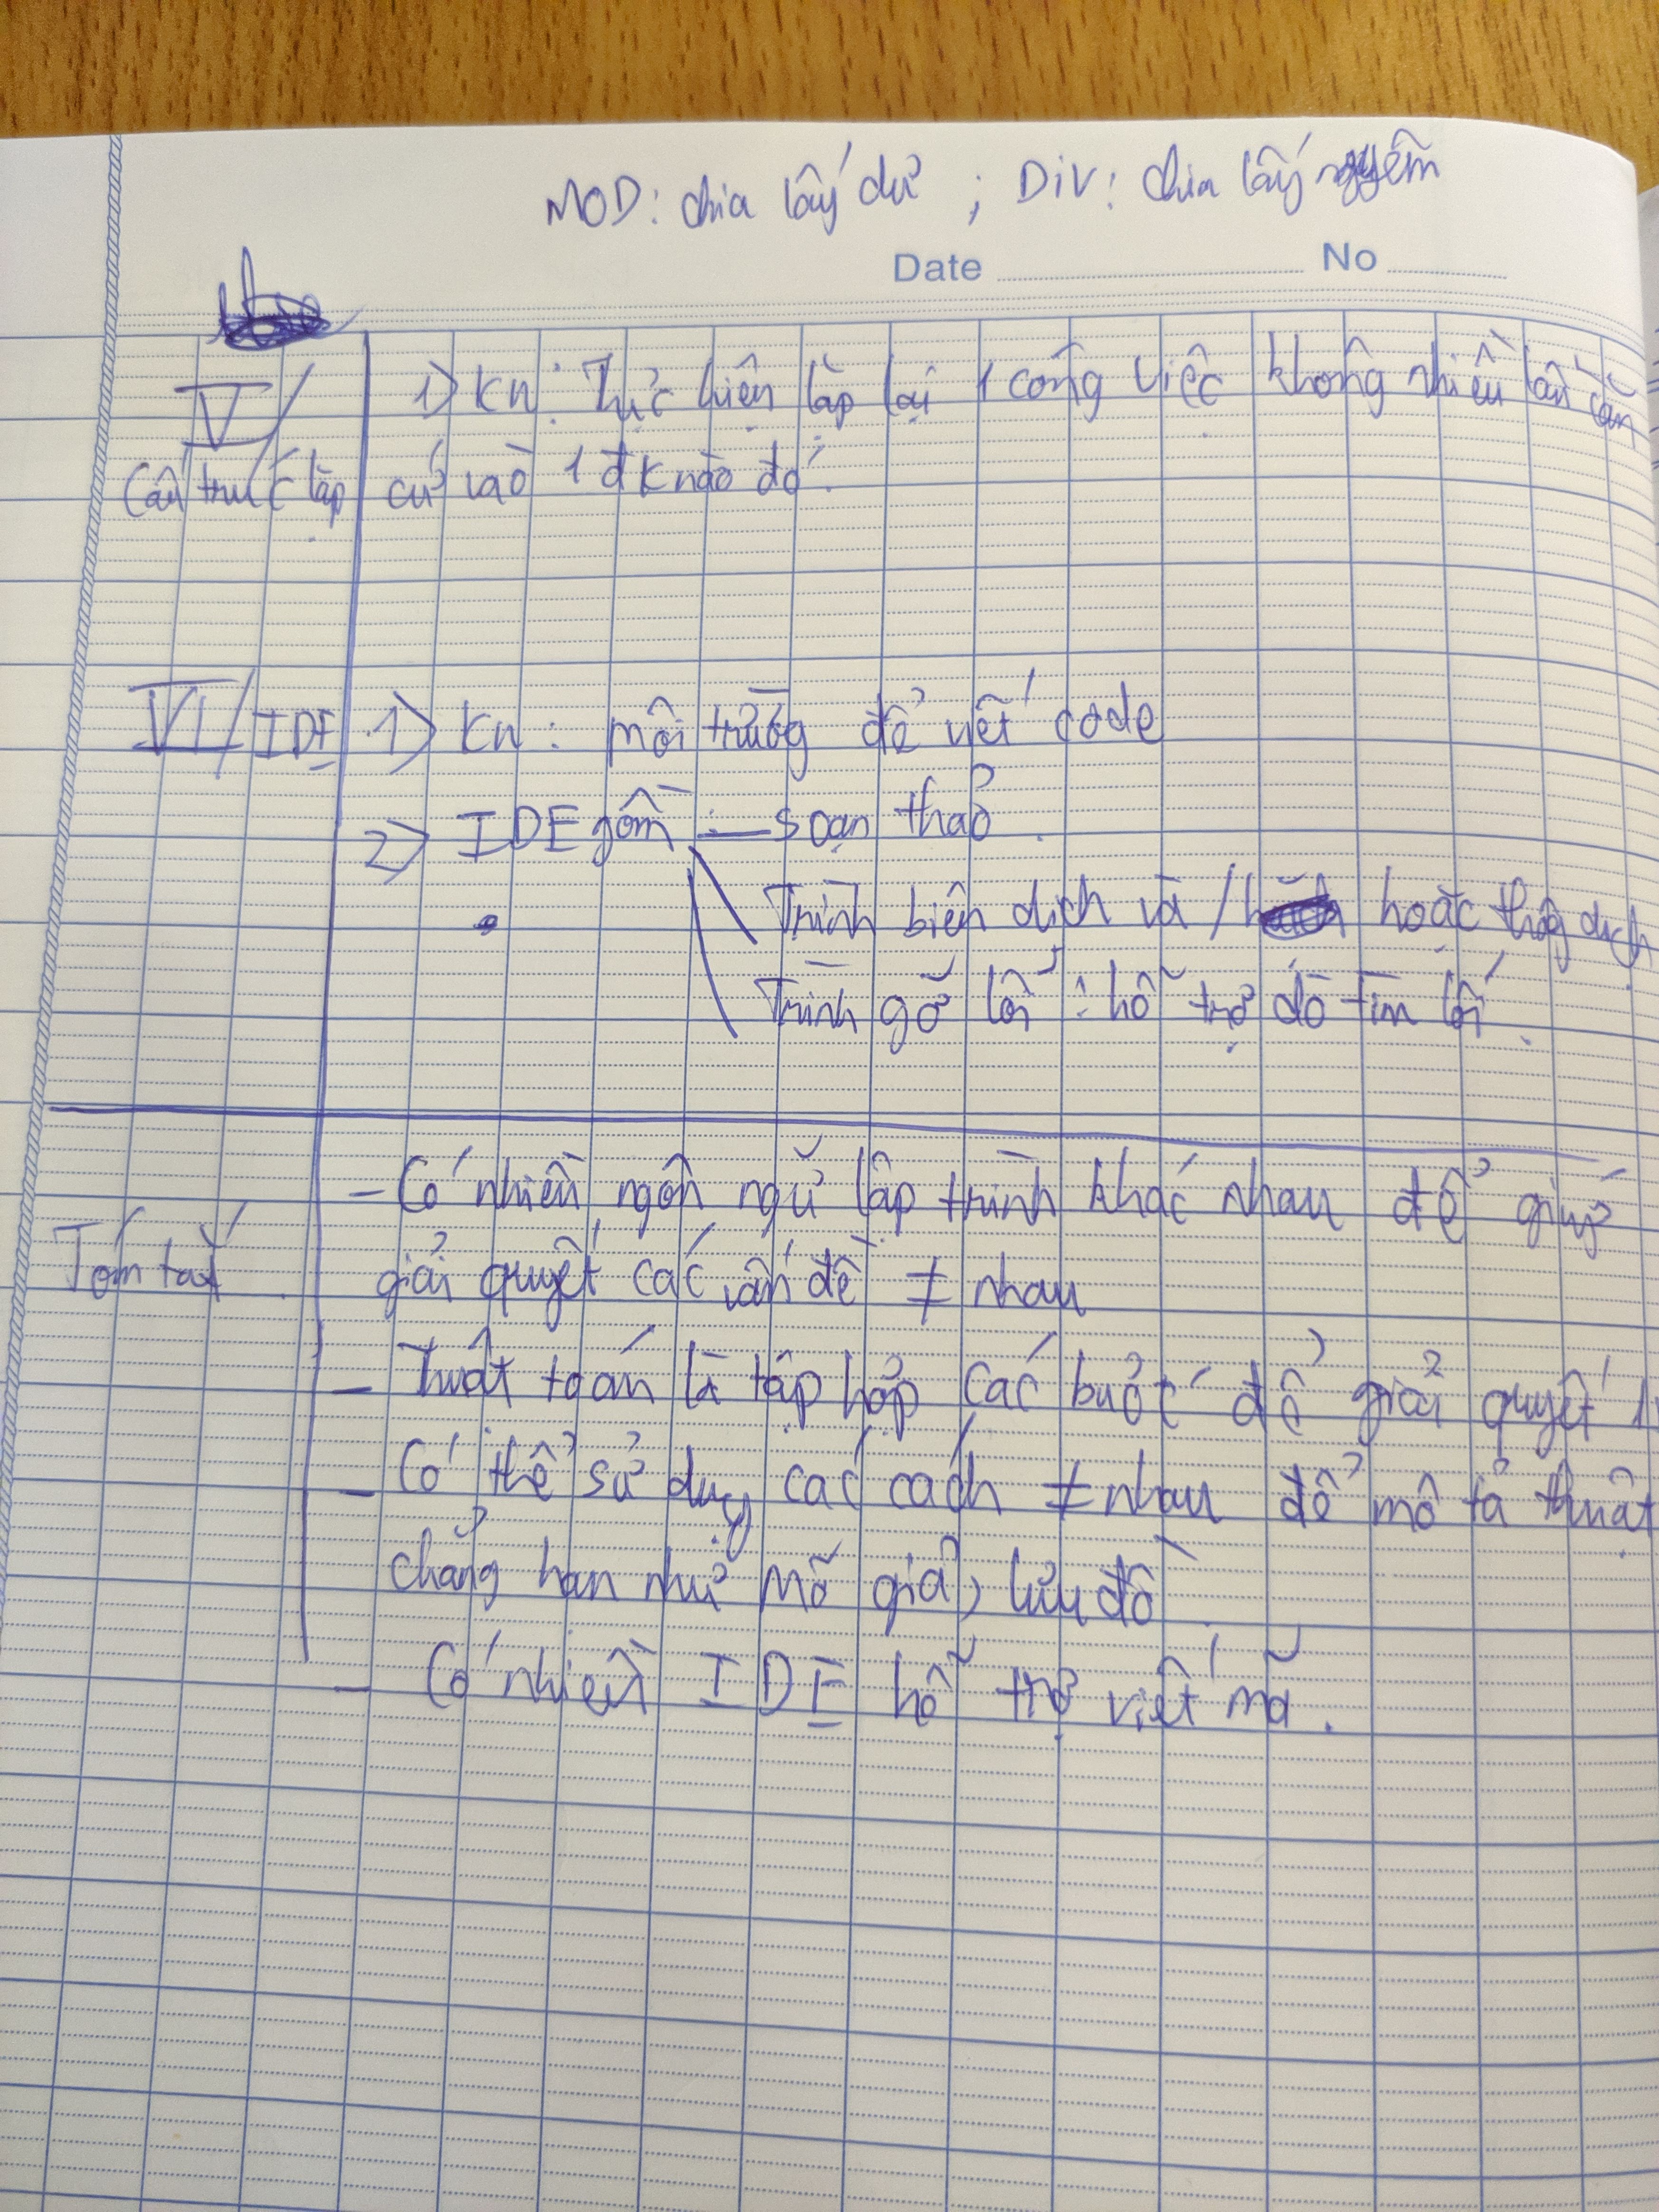 MOD: chia lấy dư ; DIV: chia lấy nguyên
Date No
V/ 1) KN: Thực hiện lặp lại 1 công việc không nhiều lần căn
Cấu trúc lặp cứ vào 1 đk nào đó.
VI/ IDE 1) KN: môi trường để viết code
2) IDE gồm : — soạn thảo.
Trình biên dịch và / hoặc thông dịch
Trình gỡ lỗi : hỗ trợ dò tìm lỗi.
- Có nhiều ngôn ngữ lập trình khác nhau để giúp
Tóm tắt. giải quyết các vấn đề ≠ nhau
- Thuật toán là tập hợp các bước để giải quyết 1
- Có thể sử dụng các cách ≠ nhau để mô tả thuật
chẳng hạn như mã giả, lưu đồ.
- Có nhiều IDE hỗ trợ viết mã.